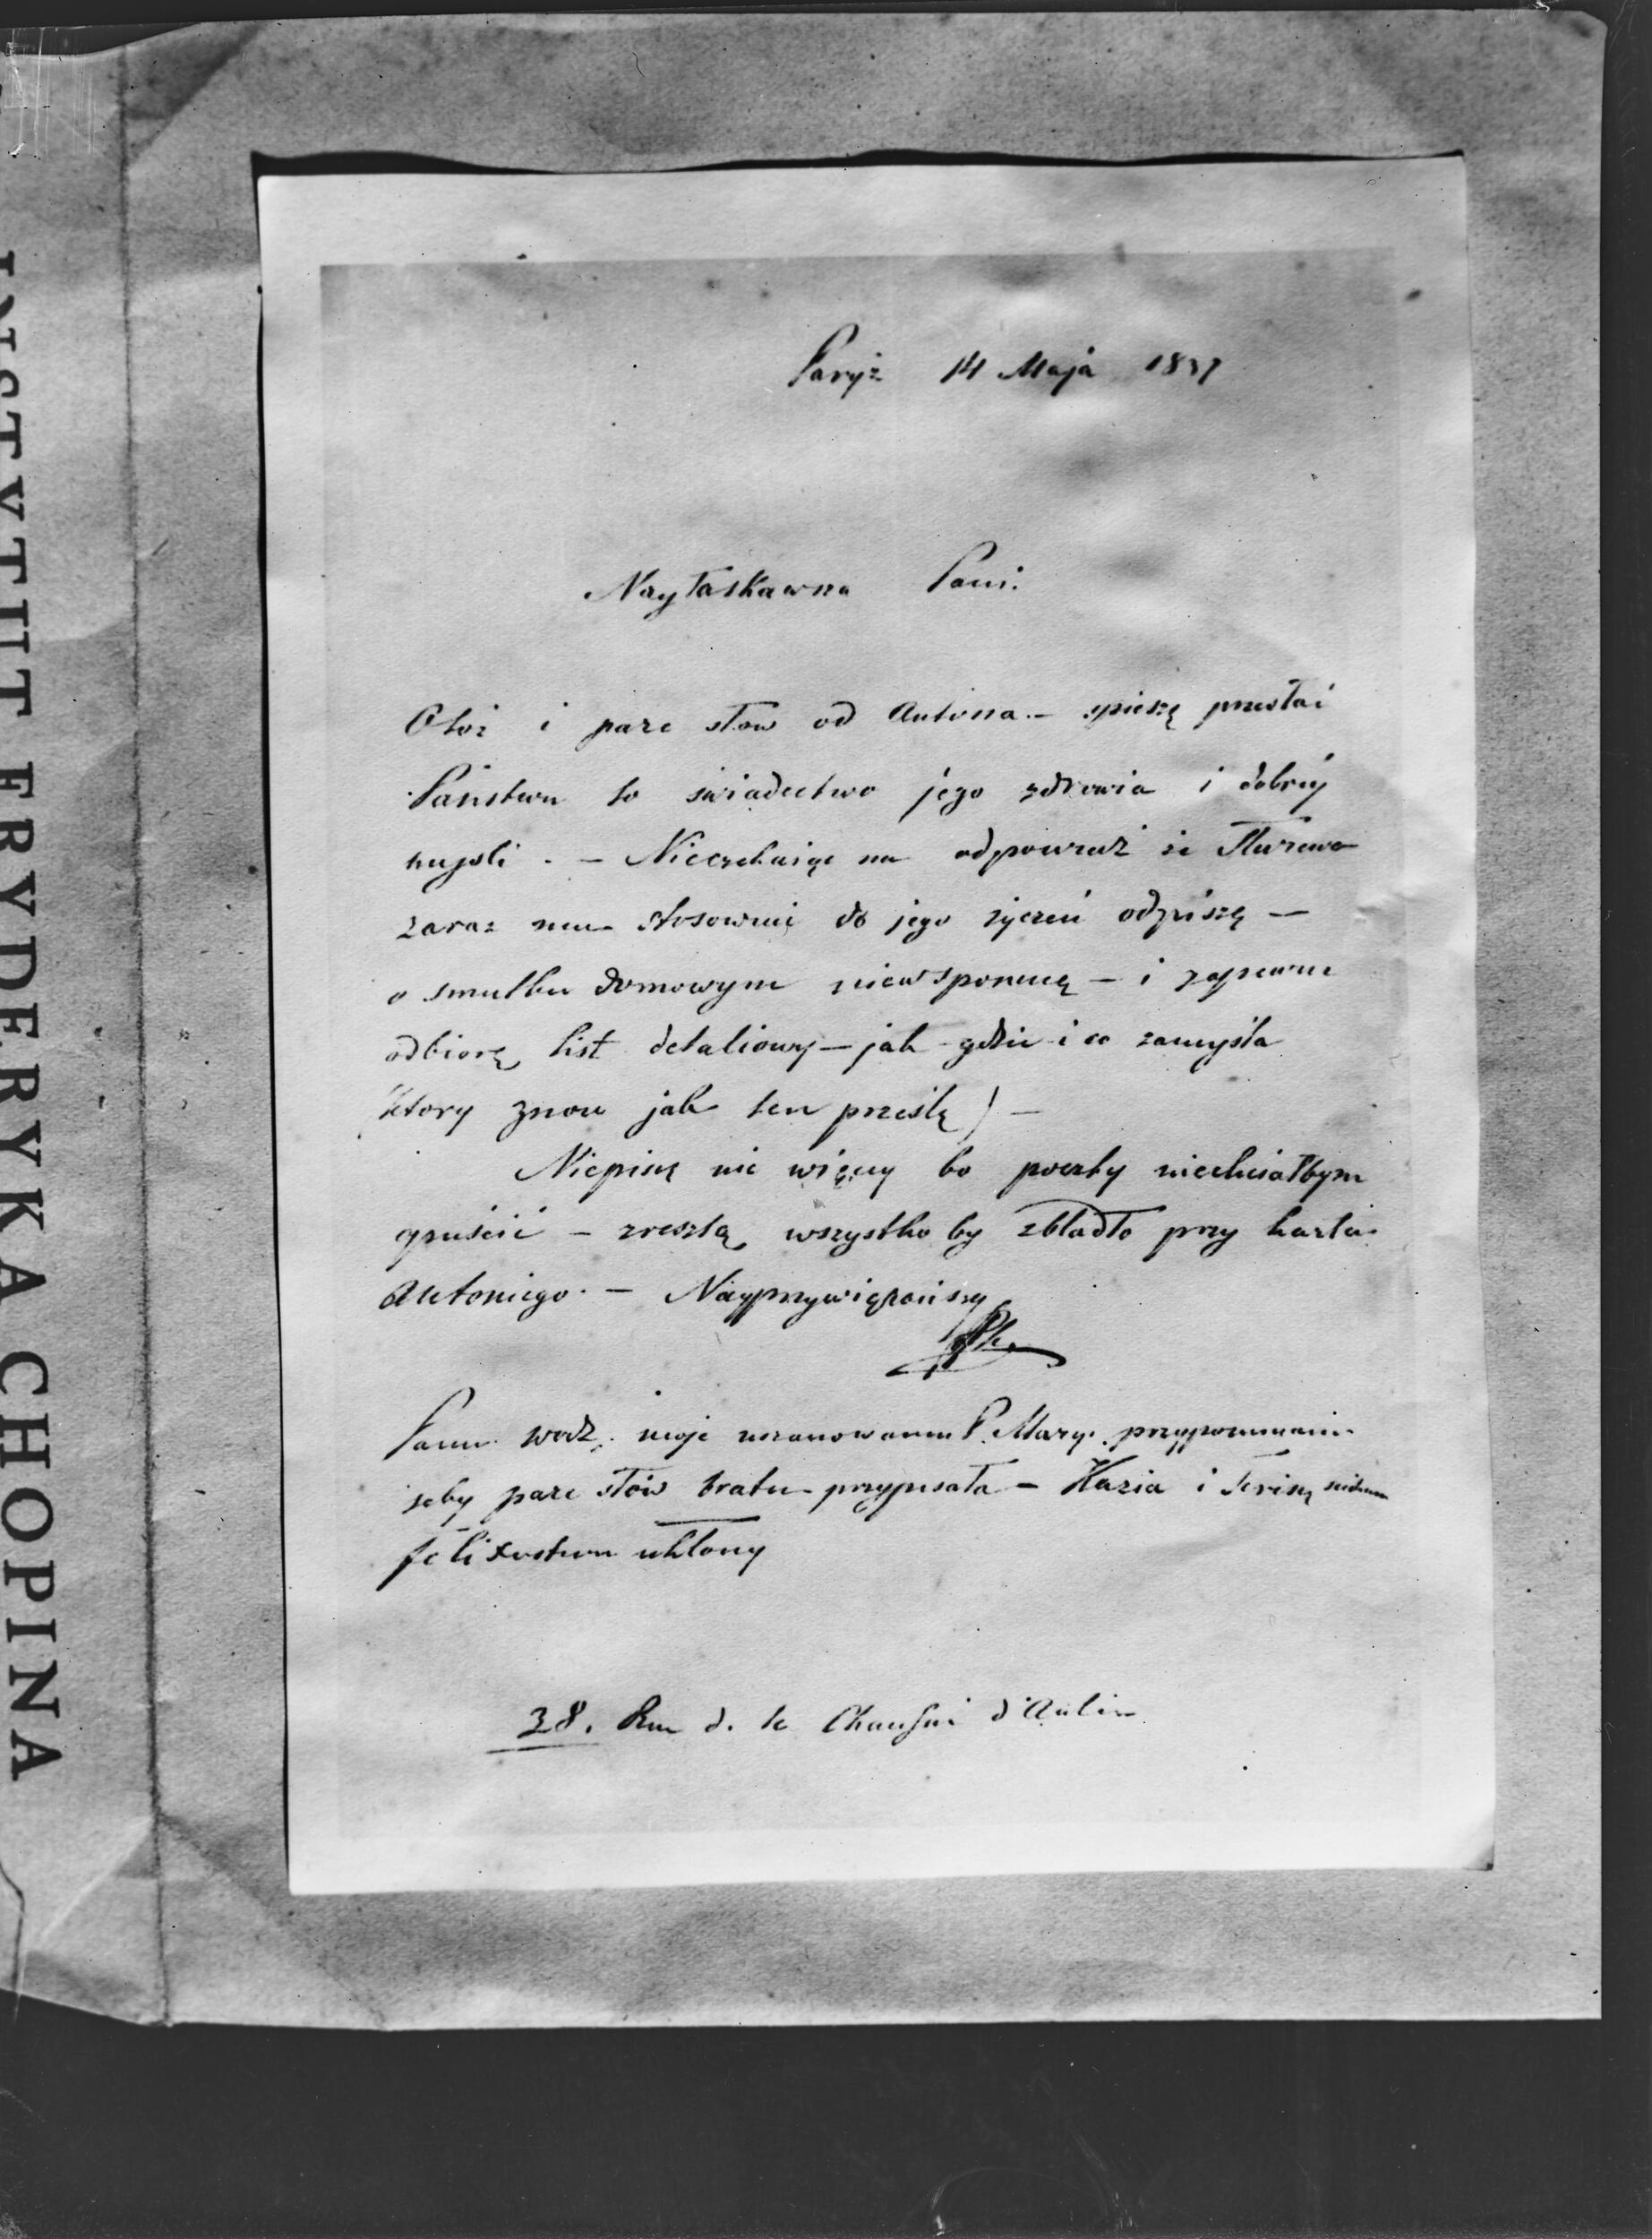 INSTYTUT FRYDERYKA CHOPINA
Paryż 14 Maja 1837
Nayłaskawsza Pani.
Otoż i pare słow od Antosia. – spieszę przesłać
Państwu to świadectwo jego zdrowia i dobréy
myśli. – Nieczekaiąc na odpowiedź ze Służewa
zaraz mu stosownie do jego życzeń odpiszę –
o smutku domowym niewspomnę – i zapewne
odbiorę list detaliowy – jak – gdzie i co zamyśla
(ktory znow jak ten prześlę) –
Niepiszę nic więcey bo poczty niechciałbym
opuścić – zresztą wszystko by zbladło przy kartce
Antoniego. – Nayprzywiązańszy
Ch.
Panu Wodz. moje uszanowanie P. Mary. przypomnienie
żeby pare słów bratu przypisała – Kazia i Terenię
Felixostwu ukłony
38. Rue d. la Chaussée d'Antin